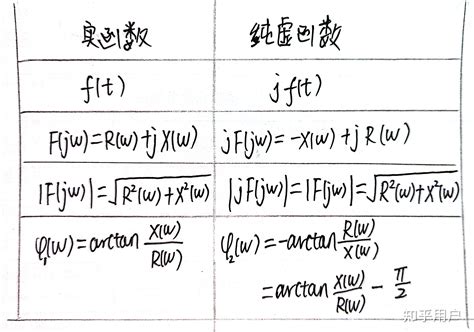 实函数 纯虚函数
f(t) jf(t)
F(jw)=R(w)+jX(w) jF(jw)=-X(w)+jR(w)
|F(jw)|=√(R²(w)+X²(w)) |jF(jw)|=|F(jw)|=√(R²(w)+X²(w))
φ₁(w)=arctan X(w)/R(w) φ₂(w)=-arctan R(w)/X(w)
=arctan X(w)/R(w) - π/2
知乎用户